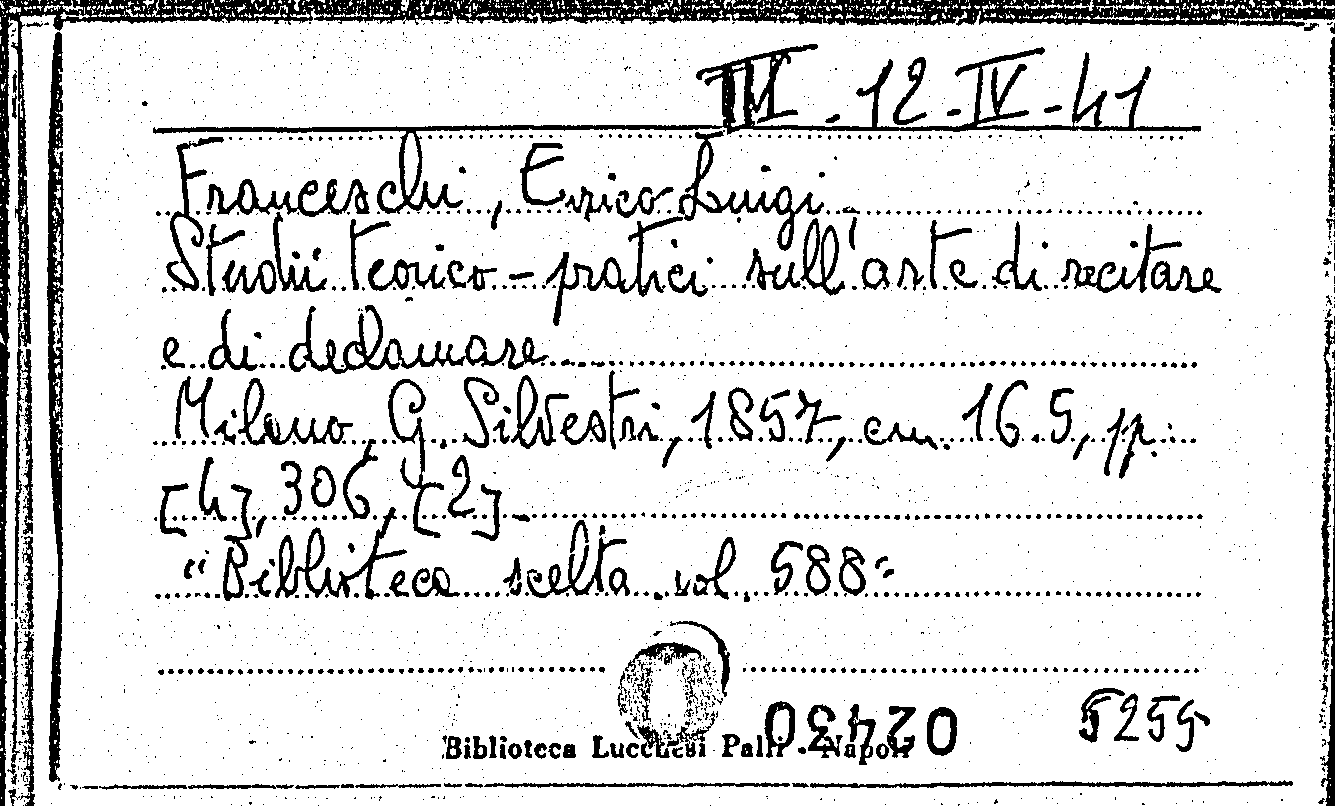 III.12.IV.41
Franceschi, Enrico Luigi
Studii teorico-pratici sull'arte di recitare
e di declamare
Milano, G. Silvestri, 1857, cm. 16.5, pp.
[4], 306, [2]
"Biblioteca scelta vol. 588"
02430
5259
Biblioteca Lucchesi Palli . Napoli